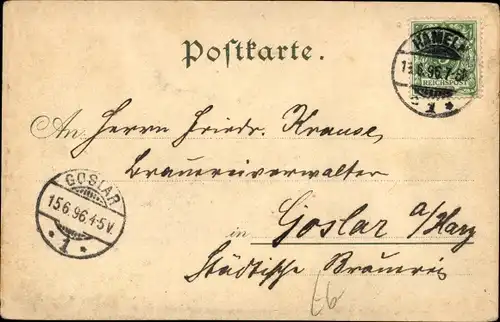 Postkarte.
HAMELN
13.6.96.7-8
REICHSPOST
An Herrn Friedr. Krause,
Brauereiverwalter
GOSLAR
15.6.96.4-5V.
* 1 *
in Goslar a/Harz
Städtische Brauerei